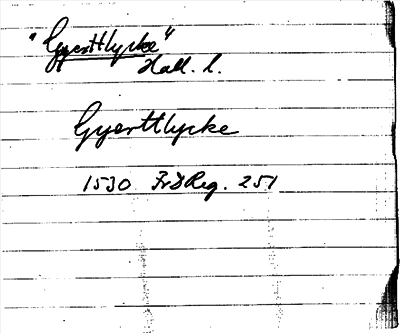 "Gyertlycke"
Hall. l.
Gyerttlycke
1530 FrdReg. 251